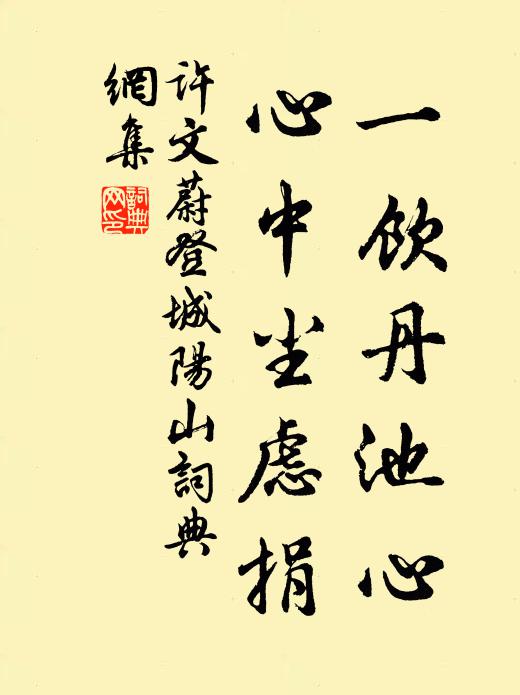 一飲丹池心
心中尘慮捐
许文蔚登城陽山詞典
網集
詞典
网印